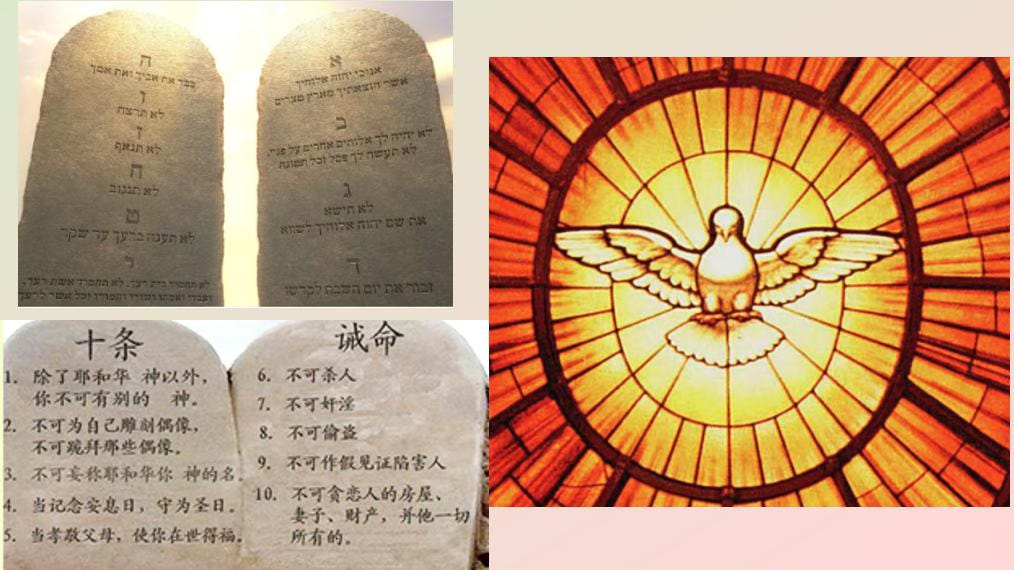 א
אנוכי יהוה אלוהיך
אשר הוצאתיך מארץ מצרים
ב
לא יהיה לך אלוהים אחרים על פני,
לא תעשה לך פסל וכל תמונה
ג
לא תישא
את שם יהוה אלוהיך לשווא
ד
זכור את יום השבת לקדשו
ה
כבד את אביך ואת אמך
ו
לא תרצח
ז
לא תנאף
ח
לא תגנוב
ט
לא תענה ברעך עד שקר
י
לא תחמוד בית רעך, לא תחמוד אשת רעך,
ועבדו ואמתו ושורו וחמורו וכל אשר לרעך
十条
1. 除了耶和华 神以外，
你不可有别的 神。
2. 不可为自己雕刻偶像，
不可跪拜那些偶像。
3. 不可妄称耶和华你 神的名。
4. 当记念安息日，守为圣日。
5. 当孝敬父母，使你在世得福。
诫命
6. 不可杀人
7. 不可奸淫
8. 不可偷盗
9. 不可作假见证陷害人
10. 不可贪恋人的房屋、
妻子、财产，并他一切
所有的。